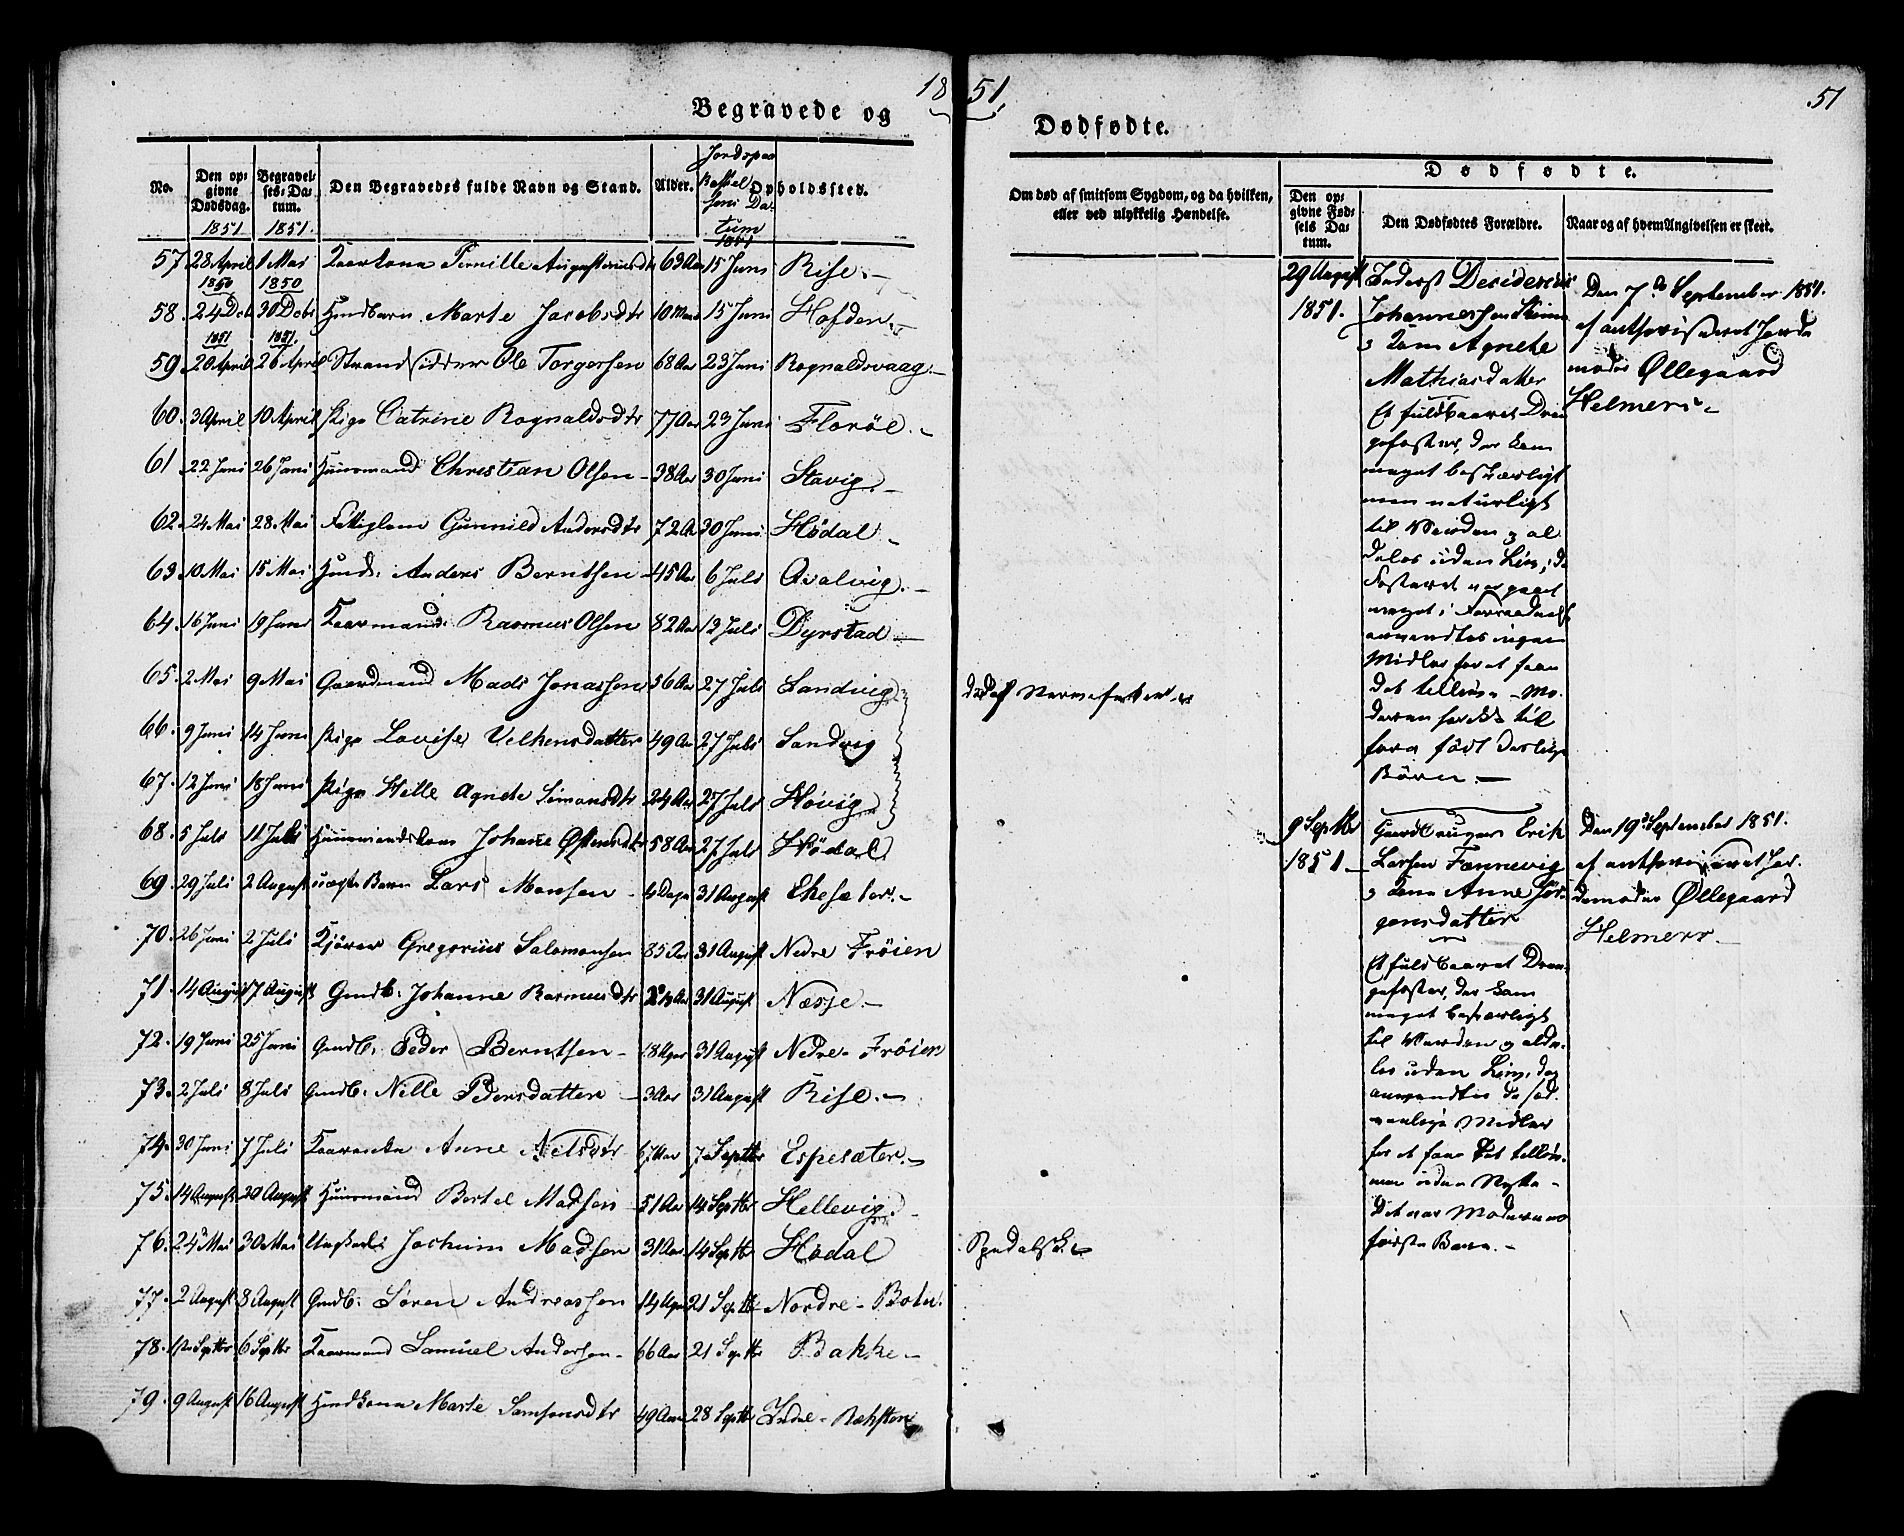 1851.
51
Begravede og
Dødfødte.
No.
Den opgivne Dødsdag. 1851
Begravelses-Datum. 1851.
Den Begravedes fulde Navn og Stand.
Alder.
Jordspaa Datum 1851
Opholdssted.
57. 28 April 1 Mai Kaarkona Pernille 63 Aar 15 Juni Rise. -
1850 1850
58. 24 Dcb 30 Dcbr Marte Jacobsdtr 10 15 Juni Hofden. -
1851 1851.
59. 20 April 26 April Strandsidder Ole Torgersen 68 Aar 23 Juni Rognaldsvaag. -
60. 3 April 10 April Pige Catrine Rognaldsdtr 77 Aar 23 Juni Florøl. -
61. 22 Juni 26 Juni Huusmand Christian Olsen - 38 Aar 30 Juni Stavig. -
62. 24 Mai 28 Mai Fattiglem Gunnild Andersdtr 72 Aar 30 Juni Hødal -
63. 10 Mai 15 Mai Anders Berntsen - 45 Aar 6 Juli Qvalvig. -
64. 16 Juni 19 Juni Kaarmand Rasmus Olsen 82 Aar 12 Juli Dyrstad -
65. 2 Mai 9 Mai Gaardmand Mads Jonassen 56 Aar 27 Juli Sandvig
66. 9 Juni 14 Juni Pige Lovise Vilkensdatter 49 Aar 27 Juli Sandvig
67. 12 Juni 18 Juni Pige Helle Agnete Simonsdtr 24 Aar 27 Juli Høvig
68. 5 Juli 11 Juli Huusmandskone Johane Østensdtr 58 Aar 27 Juli Hødal
69. 29 Juli 2 August uægte Barn Lars Monsen - 4 Dage 31 August Ekesæter. -
70. 26 Juni 2 Juli Gregorius Salomonsen 85 Aar 31 August Nedre Frøien
71. 14 August 17 August Gmdb: Johanne Rasmusdtr Aar 31 August Næsje -
72. 19 Juni 25 Juni Gmdb: Peder Berntsen - 18 31 August Nedre - Frøien
73. 2 Juli 8 Juli Gmdb: Nille Pedersdatter - 3 Aar 31 August Rise. -
74. 30 Juni 7 Juli Anne Nilsdtr 67 Aar 7 Septbr Espesæter. -
75. 14 August 20 August Huusmand Bertel Madsen - 51 Aar 14 Septbr Hellevig. -
76. 24 Mai 30 Mai Ungkarl Jochum Madsen 31 Aar 14 Septbr Hødal
77. 2 August 8 August Gmdb: Søren Andreassen 14 21 Septbr Nordre - Botn.
78. Septbr 6 Septbr Kaarmand Samuel Andersen - 66 Aar 21 Septbr Bakke -
79. 9 August 16 August Marte Samsonsdtr 49 Aar 28 Septbr Indre -
Om død af smitsom Sygdom, og da hvilken,
eller ved ulykkelig Hændelse.
Død af
Spedalsk. -
Dødfødte.
Den opgivne Fødsels Datum.
Den Dødfødtes Forældre.
Naar og af hvem Angivelsen er skeet.
29 August
1851.
Inderst Desiderius
Johannessen
Kone Agnete
Mathiasdatter
Et fuldbaaret Dren-
gefoster, der kom
meget besværligt
men naturligt
til Verden og al-
deles uden Liv, da
Fosteret
meget i
anvendtes ingen
Midler for at faae
det tillive - Mo-
deren
født
Børn. -
Den 7de September 1851.
af
Øllegaard
Helmers -
9 Septbr
1851 -
Gaardbruger Erik
Larsen Fannevig
Kone Anne Jør-
gensdatter
Et fuldbaaret Dren-
gefoster, der kom
meget besværligt
til Verden og alde-
les uden Liv, dog
anvendtes de sæd-
vanlige Midler
for at faae det tilliv
men uden Nytte -
Det var Moderens
første Barn. -
Den 19de September 1851.
af
Øllegaard
Helmers -